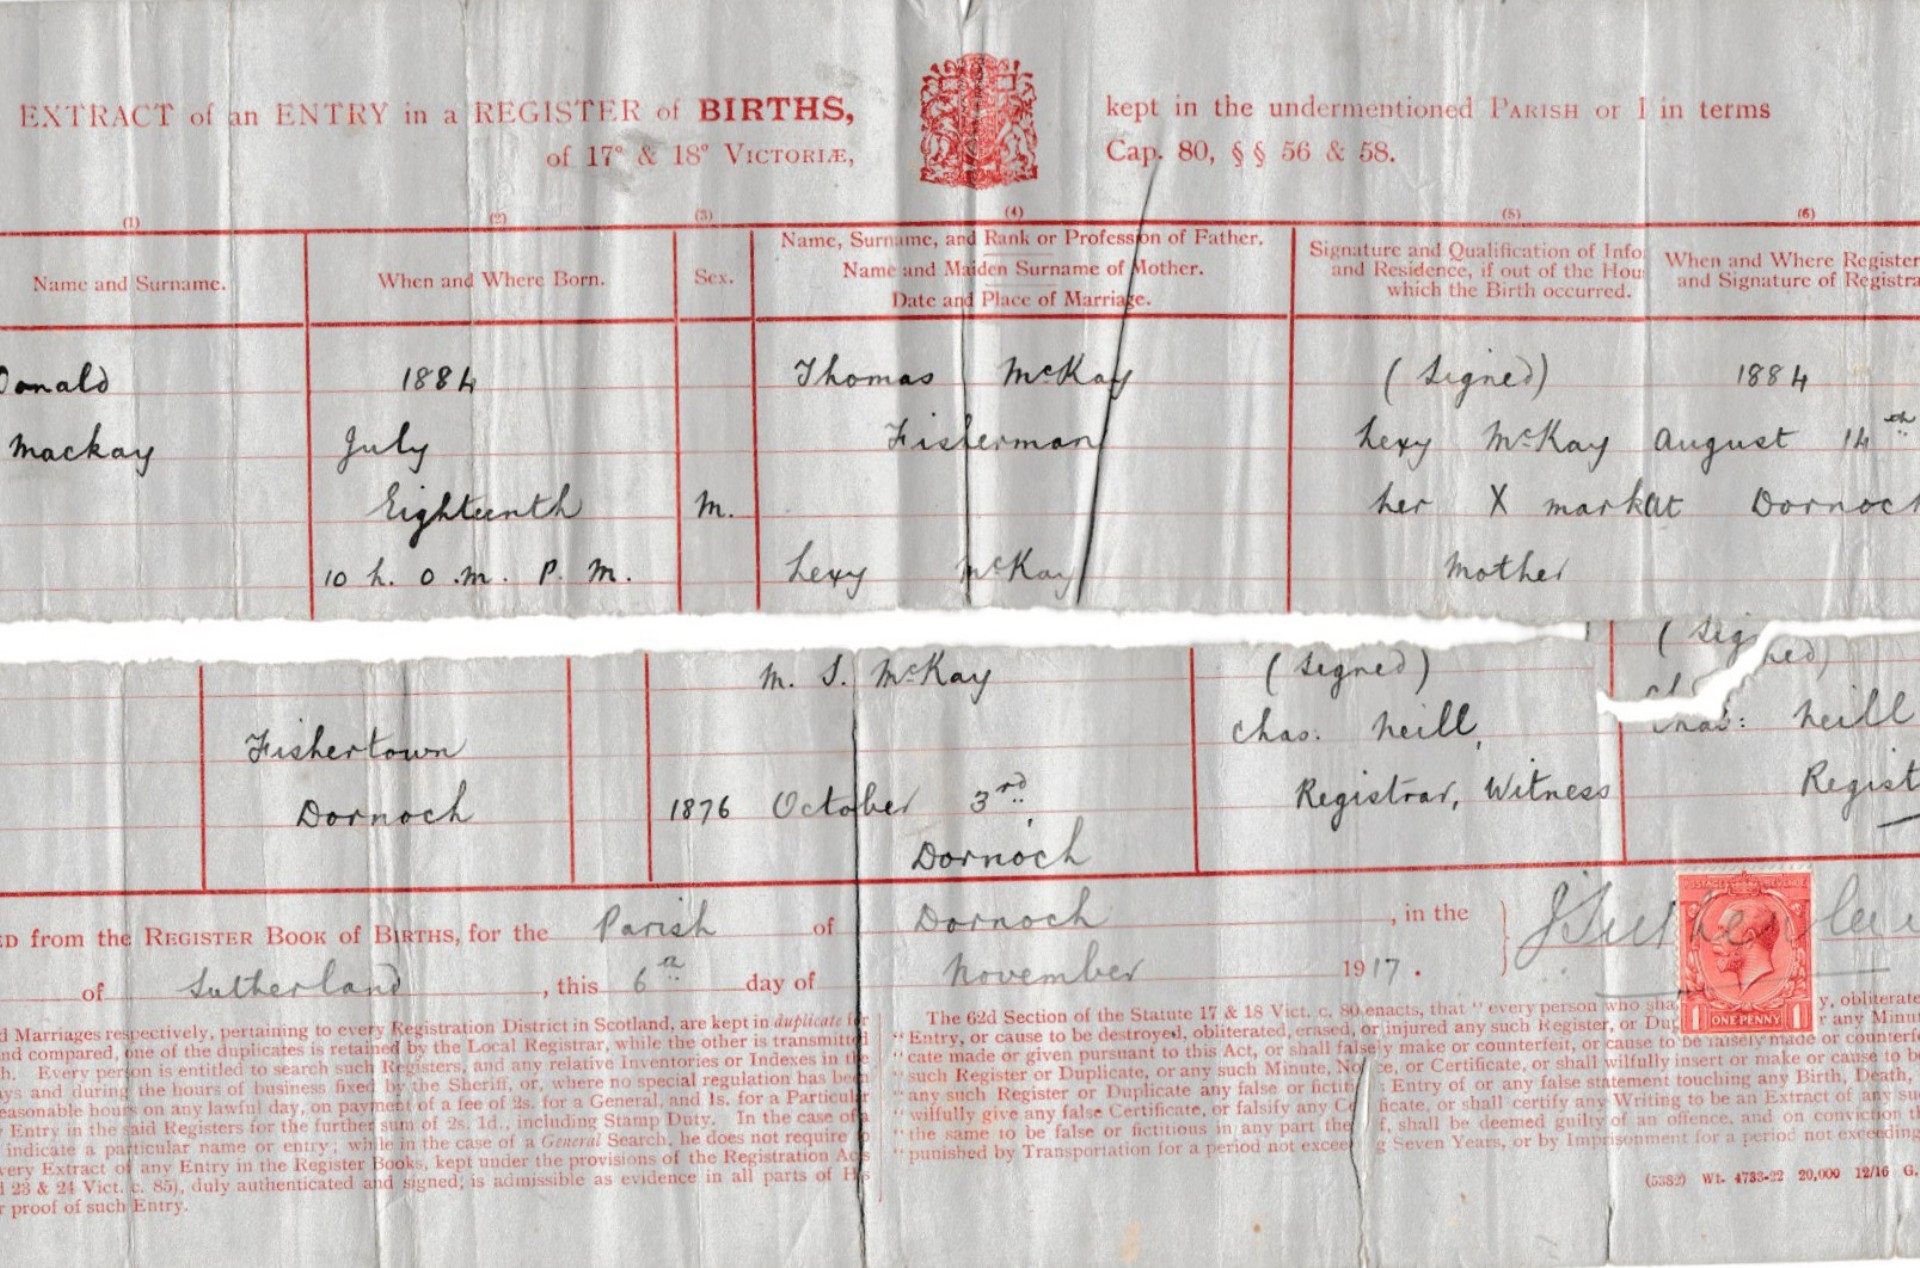 EXTRACT of an ENTRY in a REGISTER of BIRTHS,
kept in the undermentioned PARISH or I in terms
of 17° & 18° VICTORIÆ,
Cap. 80, §§ 56 & 58.
(1)
(2)
(3)
(4)
(5)
(6)
Name and Surname.
When and Where Born.
Sex.
Name, Surname, and Rank or Profession of Father.
Name and Maiden Surname of Mother.
Date and Place of Marriage.
Signature and Qualification of Info
and Residence, if out of the Hou
which the Birth occurred.
When and Where Register
and Signature of Registra
Donald
Mackay
1884
July
Eighteenth
10 h. 0 m. P. M.
M.
Thomas McKay
Fisherman
Lexy McKay
(Signed)
Lexy McKay
her X mark
Mother
1884
August 14th
At Dornoch
Fishertown
Dornoch
M. S. McKay
1876 October 3rd
Dornoch
(Signed)
Chas. Neill,
Registrar, Witness
(Signed)
Chas: Neill
Regist
ED from the REGISTER BOOK OF BIRTHS, for the Parish of Dornoch, in the
of Sutherland, this 6th day of November 1917.
J Sutherlan
POSTAGE REVENUE
1 ONE PENNY 1
d Marriages respectively, pertaining to every Registration District in Scotland, are kept in duplicate for
nd compared, one of the duplicates is retained by the Local Registrar, while the other is transmitted
h. Every person is entitled to search such Registers, and any relative Inventories or Indexes in the
ys and during the hours of business fixed by the Sheriff, or, where no special regulation has been
easonable hours on any lawful day, on payment of a fee of 2s. for a General, and 1s. for a Particular
Entry in the said Registers for the further sum of 2s. 1d., including Stamp Duty. In the case of a
indicate a particular name or entry; while in the case of a General Search, he does not require
very Extract of any Entry in the Register Books, kept under the provisions of the Registration Acts
d 23 & 24 Vict. c. 85), duly authenticated and signed; is admissible as evidence in all parts of His
r proof of such Entry.
The 62d Section of the Statute 17 & 18 Vict. c. 80 enacts, that " every person who sha y, obliterate
" Entry, or cause to be destroyed, obliterated, erased, or injured any such Register, or Dup r any Minut
" cate made or given pursuant to this Act, or shall falsely make or counterfeit, or cause to be falsely made or counterfe
" such Register or Duplicate, or any such Minute, No ce, or Certificate, or shall wilfully insert or make or cause to be
" any such Register or Duplicate any false or fictiti Entry of or any false statement touching any Birth, Death,
" wilfully give any false Certificate, or falsify any Ce ficate, or shall certify any Writing to be an Extract of any su
" the same to be false or fictitious in any part the f, shall be deemed guilty of an offence, and on conviction th
" punished by Transportation for a period not excee g Seven Years, or by Imprisonment for a period not exceeding
(5382) Wt. 4733-22 20,000 12/16 G.